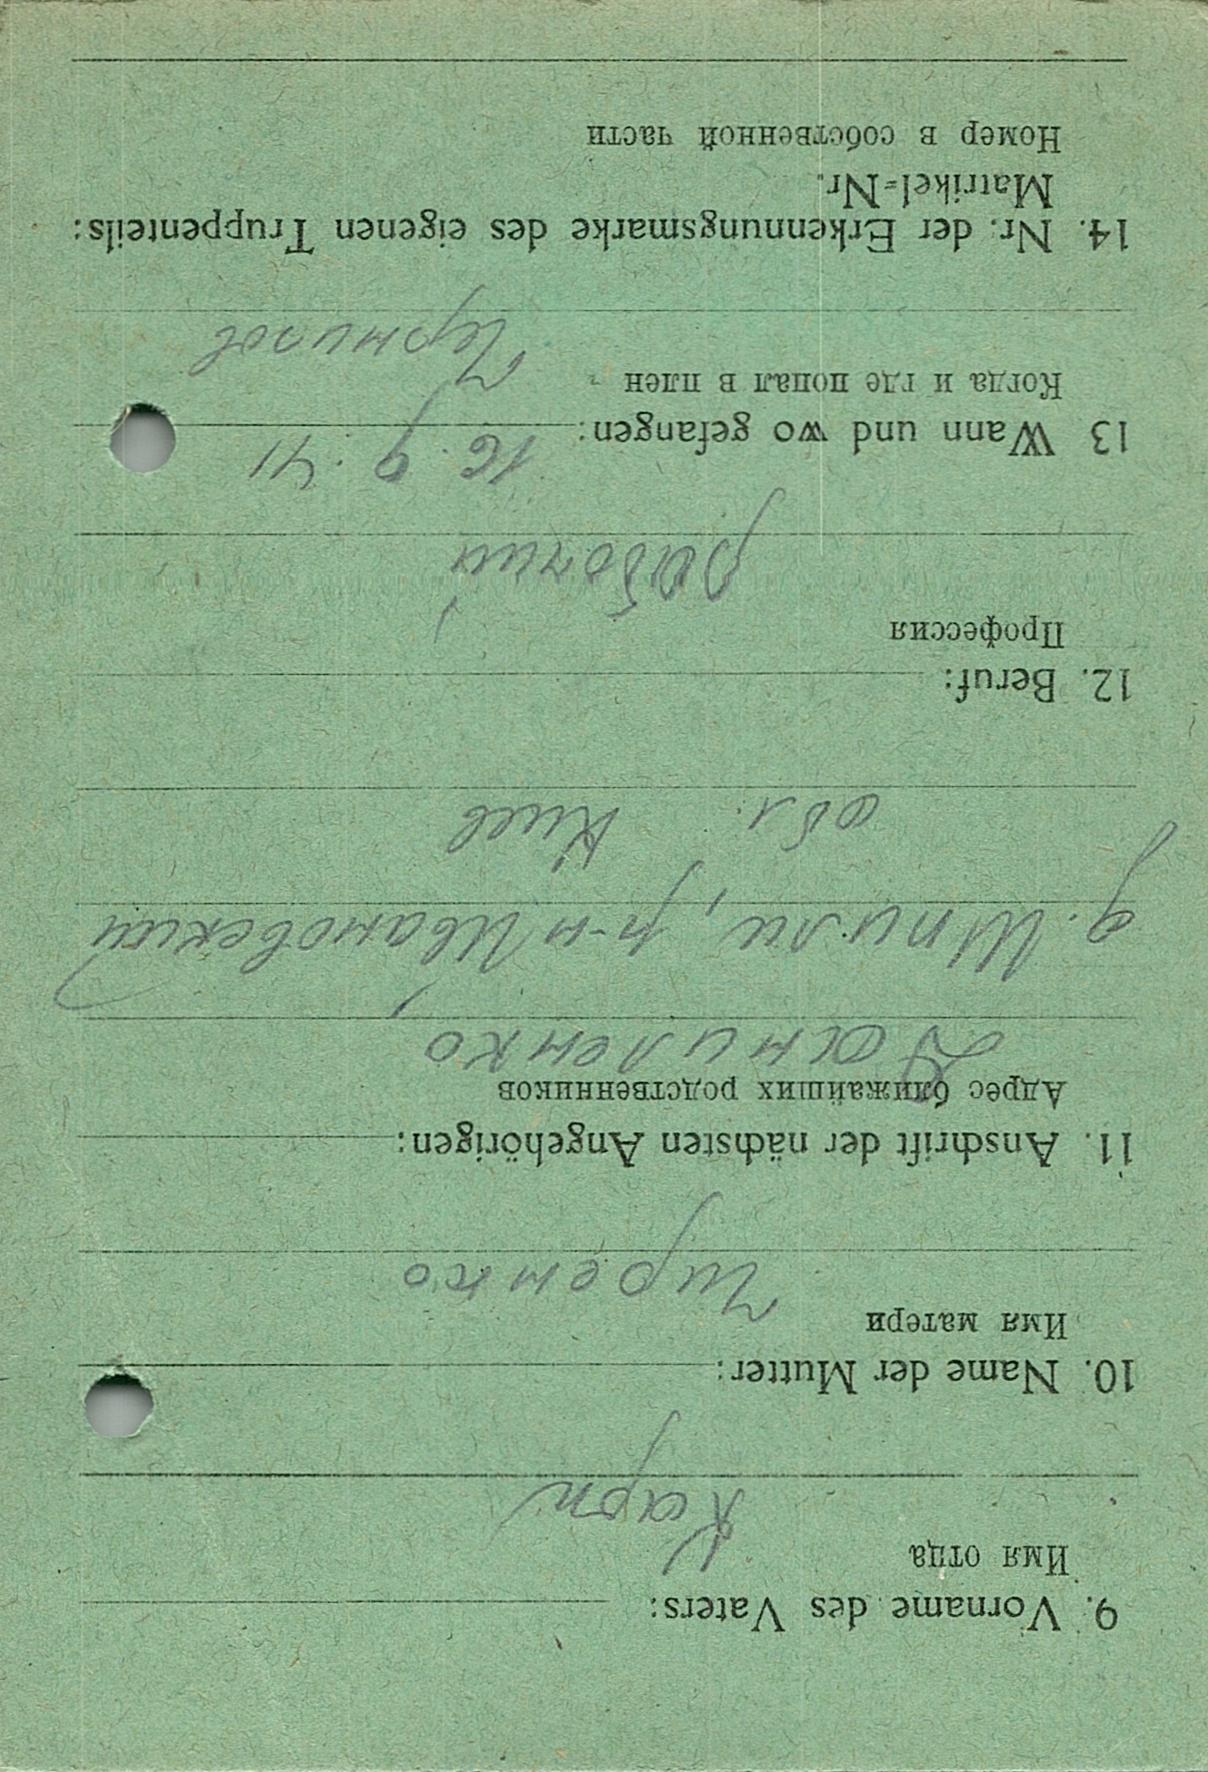 9. Vorname des Vaters:
Имя отца
Карп
10. Name der Mutter:
Имя матери
Чиренко
11. Anschrift der nächsten Angehörigen:
Адрес ближайших родственников
Даниленко
д. Шпили, р-н Ивановский
обл. Киев
12. Beruf:
Профессия
рабочий
13 Wann und wo gefangen:
16.9.41
Когда и где попал в плен
14. Nr. der Erkennungsmarke des eigenen Truppenteils:
Matrikel-Nr.
Номер в собственной части